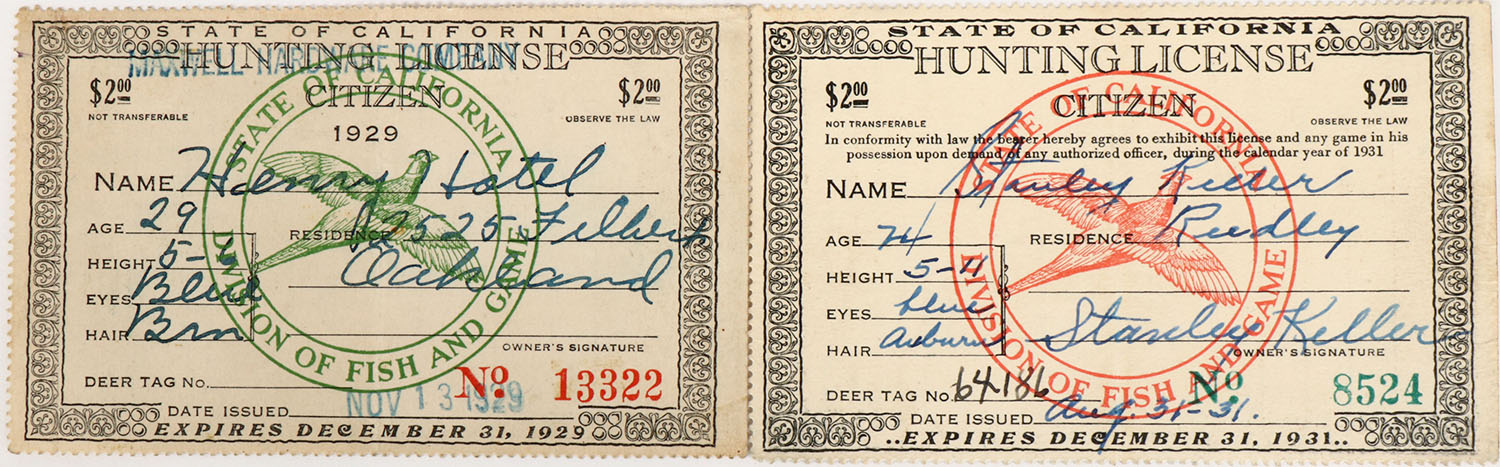 STATE OF CALIFORNIA
HUNTING LICENSE
MAXWELL HARDWARE COMPANY
$2.00 CITIZEN $2.00
NOT TRANSFERABLE OBSERVE THE LAW
1929
STATE OF CALIFORNIA
DIVISION OF FISH AND GAME
NAME Henry Hotel
AGE 29 RESIDENCE 2525 Filbert
HEIGHT 5-6 Oakland
EYES Blue
HAIR Brn
OWNER'S SIGNATURE
DEER TAG No. No. 13322
DATE ISSUED NOV 13 1929
EXPIRES DECEMBER 31, 1929
STATE OF CALIFORNIA
HUNTING LICENSE
$2.00 CITIZEN $2.00
NOT TRANSFERABLE OBSERVE THE LAW
In conformity with law the bearer hereby agrees to exhibit this license and any game in his
possession upon demand of any authorized officer, during the calendar year of 1931
STATE OF CALIFORNIA
DIVISION OF FISH AND GAME
NAME Stanley Keller
AGE 24 RESIDENCE Reedley
HEIGHT 5-11
EYES blue
HAIR Auburn Stanley Keller
OWNER'S SIGNATURE
DEER TAG No. 64186 No. 8524
DATE ISSUED Aug-31-31.
..EXPIRES DECEMBER 31, 1931..